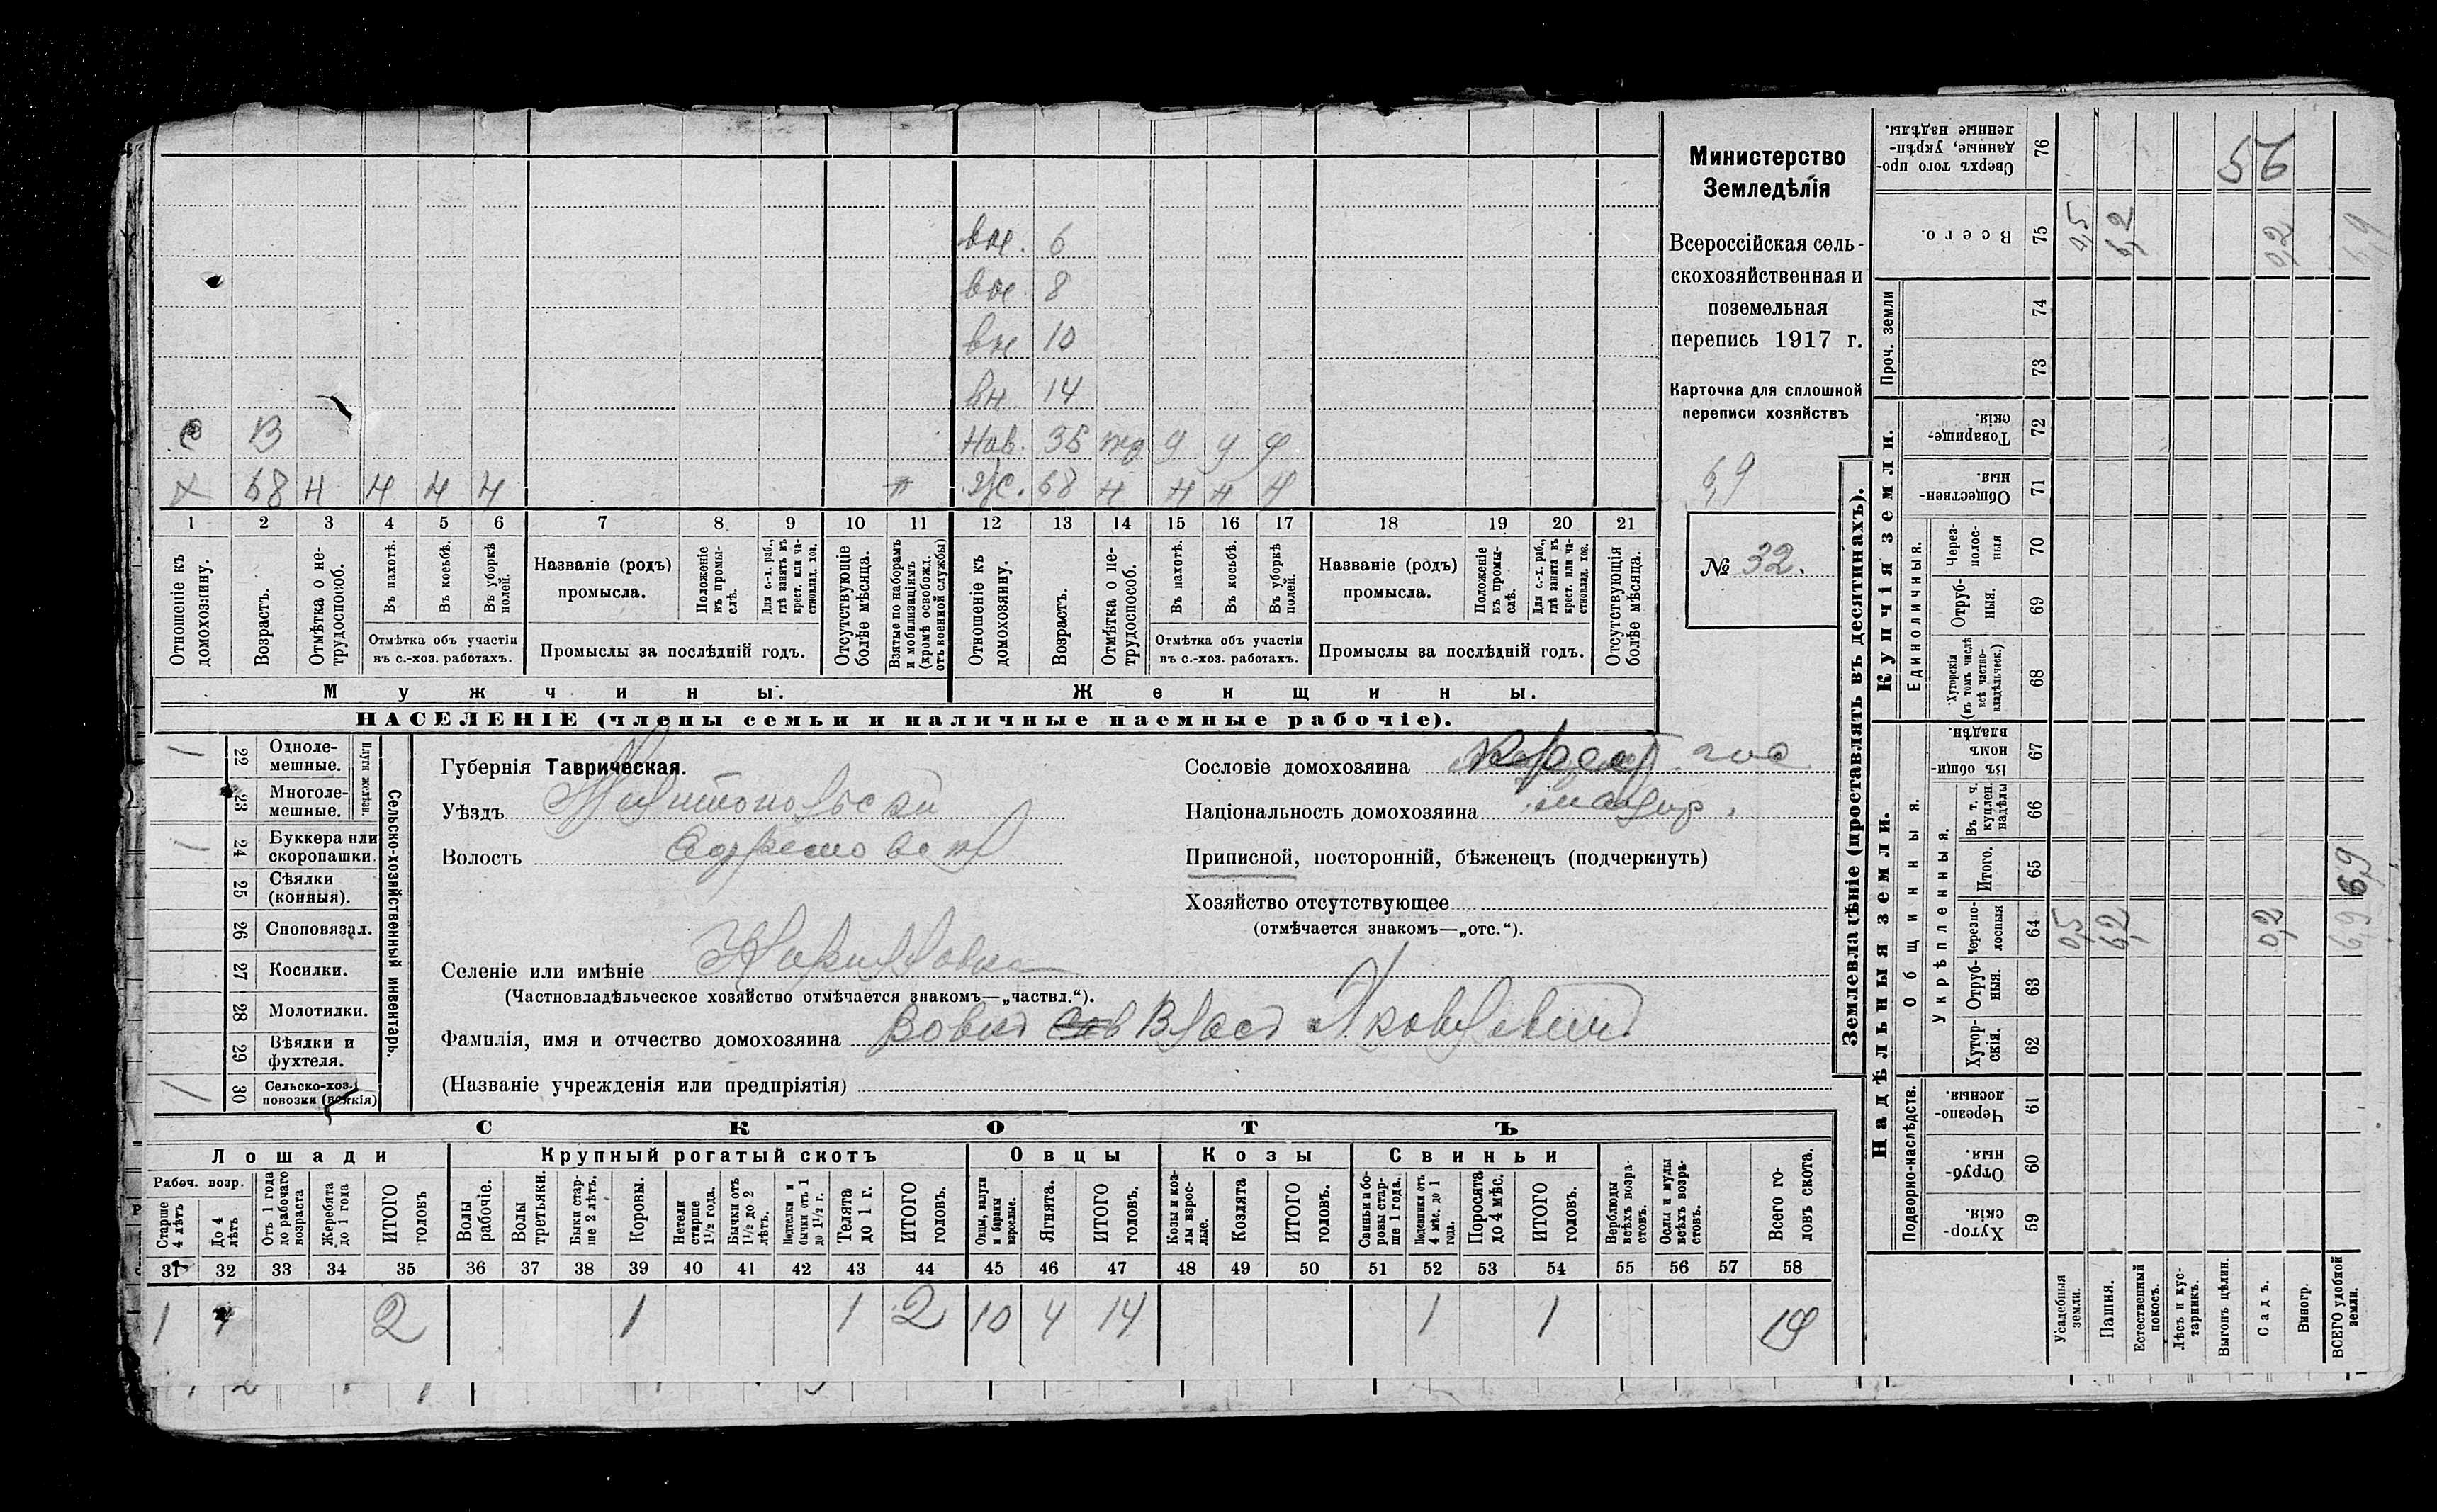 вн. 6
вн 8
вн 10
вн 14
с В
Нав. 35
х 68 н н н н ж. 68 н н н н
1 2 3 4 5 6 7 8 9 10 11 12 13 14 15 16 17 18 19 20 21
Отношеніе къ домохозяину.
Возрастъ.
Отмѣтка о не-трудоспособ.
Въ пахотѣ.
Въ косьбѣ.
Въ уборкѣ полей.
Отмѣтка объ участіи въ с.-хоз. работахъ.
Названіе (родъ) промысла.
Положеніе въ промы-слѣ.
Для с.-х. раб., гдѣ занятъ въ крест. или ча-стновлад. хоз.
Промыслы за послѣдній годъ.
Отсутствующіе болѣе мѣсяца.
Взятые по наборамъ и мобилизаціямъ (кромѣ освобожд. отъ военной службы)
Отношеніе къ домохозяину.
Возрастъ.
Отмѣтка о не-трудоспособ.
Въ пахотѣ.
Въ косьбѣ.
Въ уборкѣ полей.
Отмѣтка объ участіи въ с.-хоз. работахъ.
Названіе (родъ) промысла.
Положеніе въ промы-слѣ.
Для с.-х. раб., гдѣ занята въ крест. или ча-стновлад. хоз.
Промыслы за послѣдній годъ.
Отсутствующія болѣе мѣсяца.
Мужчины.
Женщины.
НАСЕЛЕНІЕ (члены семьи и наличные наемные рабочіе).
Министерство
Земледѣлія
Всероссійская сель-
скохозяйственная и
поземельная
перепись 1917 г.
Карточка для сплошной
переписи хозяйствъ
6,9
№ 32.
Сельско-хозяйственный инвентарь.
Плуги желѣзн.
22 Одноле-мешные.
23 Многоле-мешные.
24 Буккера или скоропашки.
25 Сѣялки (конныя).
26 Сноповязал.
27 Косилки.
28 Молотилки.
29 Вѣялки и фухтеля.
30 Сельско-хоз. повозки (всякія)
Губернія Таврическая.
Уѣздъ Мелитопольскій
Волость Ефремовск
Селеніе или имѣніе
(Частновладѣльческое хозяйство отмѣчается знакомъ—„частвл.“).
Фамилія, имя и отчество домохозяина Вовкъ Власъ Яковлевичъ
(Названіе учрежденія или предпріятія)
Сословіе домохозяина
Національность домохозяина малор.
Приписной, посторонній, бѣженецъ (подчеркнуть)
Хозяйство отсутствующее
(отмѣчается знакомъ—„отс.“).
СКОТЪ
Лошади
Крупный рогатый скотъ
Овцы
Козы
Свиньи
Рабоч. возр.
Старше 4 лѣтъ
До 4 лѣтъ
Отъ 1 года до рабочаго возраста
Жеребята до 1 года
ИТОГО головъ
Волы рабочіе.
Волы третьяки.
Быки стар-ше 2 лѣтъ.
Коровы.
Нетели старше 1½ года.
Бычки отъ 1½ до 2 лѣтъ.
Подтелки и бычки отъ 1 до 1½ г.
Телята до 1 г.
ИТОГО головъ.
Овцы, валухи и бараны взрослые.
Ягнята.
ИТОГО головъ.
Козы и коз-лы взрос-лые.
Козлята
ИТОГО головъ.
Свиньи и бо-ровы стар-ше 1 года.
Подсвинки отъ 4 мѣс. до 1 года.
Поросята до 4 мѣс.
ИТОГО головъ.
Верблюды всѣхъ возра-стовъ.
Ослы и мулы всѣхъ возра-стовъ.
Всего го-ловъ скота.
31 32 33 34 35 36 37 38 39 40 41 42 43 44 45 46 47 48 49 50 51 52 53 54 55 56 57 58
1 1 2 1 1 2 10 4 14 1 1 19
Землевладѣніе (проставлять въ десятинахъ).
Надѣльныя земли.
Купчія земли.
Проч. земли
Подворно-наслѣдств.
Общинныя.
Укрѣпленныя.
Единоличныя.
59 Хутор-скія.
60 Отруб-ныя.
61 Черезпо-лосныя.
62 Хутор-скія.
63 Отруб-ныя.
64 Черезпо-лосныя
65 Итого.
66 Въ т. ч. куплен. надѣлы
67 Въ общи-номъ владѣн.
68 Хуторскія (въ томъ числѣ всѣ частно-владѣльческ.)
69 Отруб-ныя.
70 Через-полос-ныя
71 Обществен-ныя.
72 Товарище-скія.
73
74
75 Всего.
76 Сверхъ того про-данные, укрѣп-ленные надѣлы.
Усадебныя земли.
Пашня.
Естественный покосъ.
Лѣсъ и кус-тарникъ.
Выгонъ цѣлин.
Садъ.
Виногр.
ВСЕГО удобной земли.
0,5 6,2 0,2 6,9
6,9
0,5 6,2 0,2 6,9
56